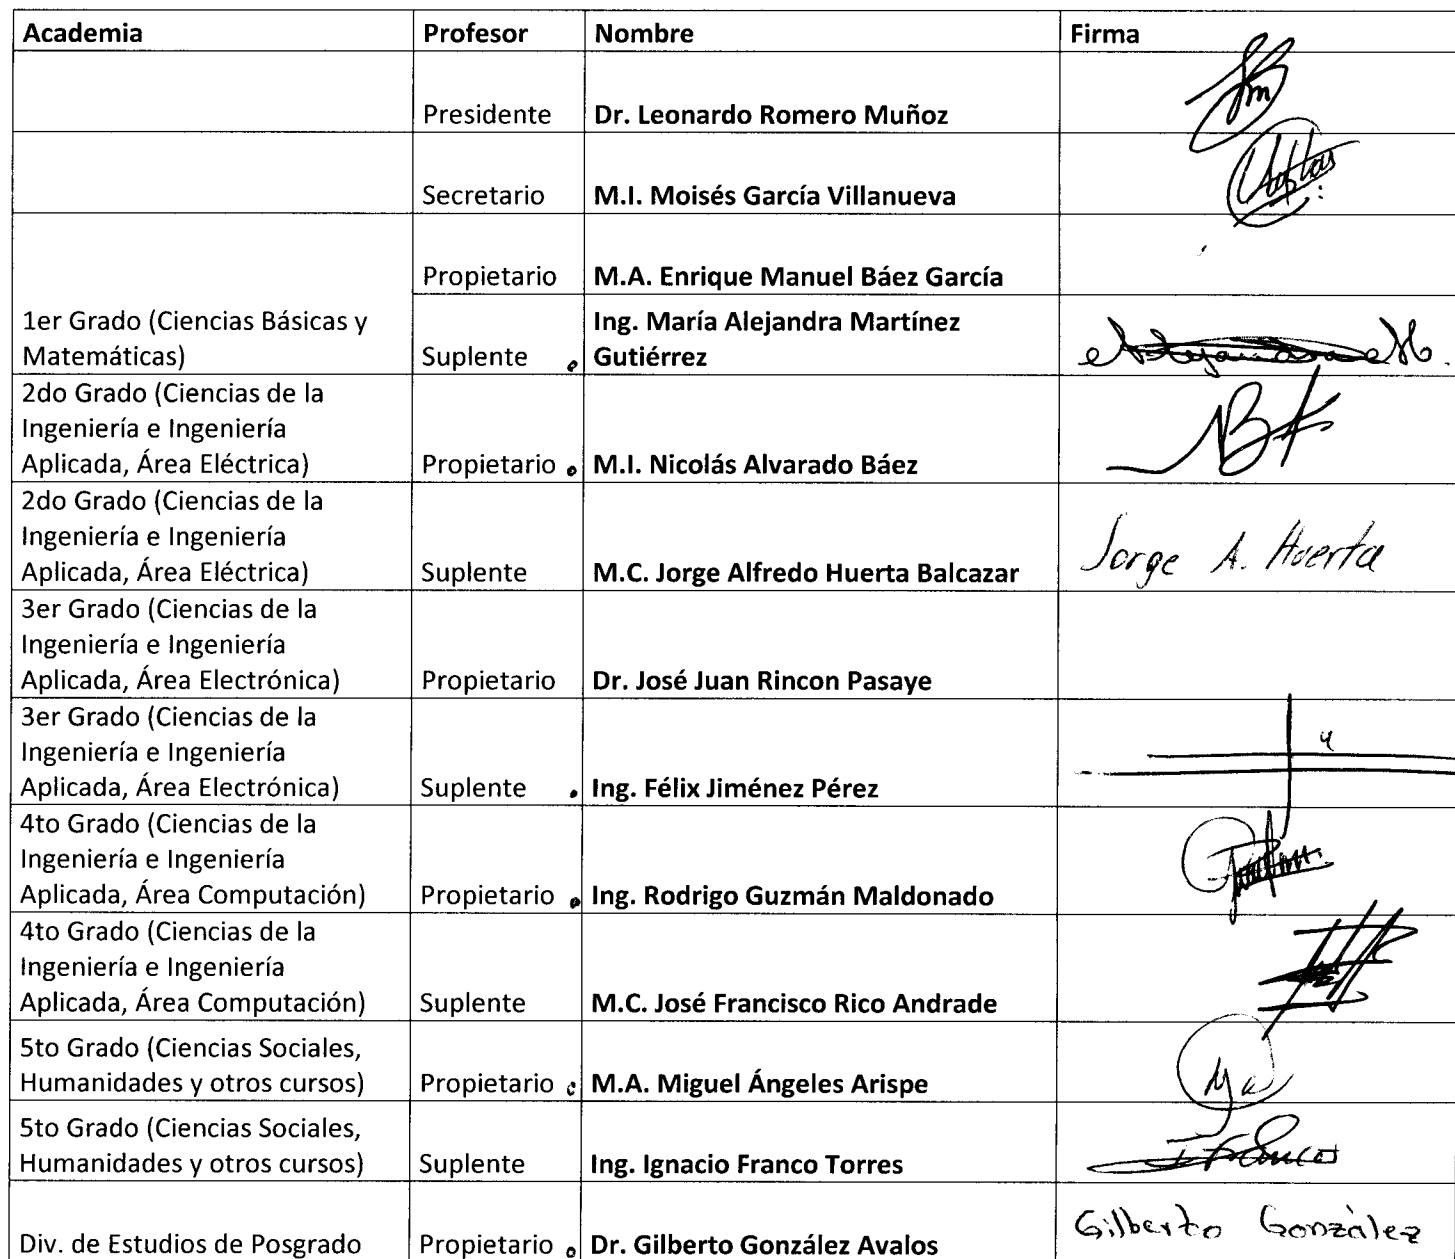 Academia Profesor Nombre Firma
Presidente Dr. Leonardo Romero Muñoz
Secretario M.I. Moisés García Villanueva
Propietario M.A. Enrique Manuel Báez García
1er Grado (Ciencias Básicas y
Matemáticas) Suplente Ing. María Alejandra Martínez
Gutiérrez Alejandra M.
2do Grado (Ciencias de la
Ingeniería e Ingeniería
Aplicada, Área Eléctrica) Propietario M.I. Nicolás Alvarado Báez
2do Grado (Ciencias de la
Ingeniería e Ingeniería
Aplicada, Área Eléctrica) Suplente M.C. Jorge Alfredo Huerta Balcazar Jorge A. Huerta
3er Grado (Ciencias de la
Ingeniería e Ingeniería
Aplicada, Área Electrónica) Propietario Dr. José Juan Rincon Pasaye
3er Grado (Ciencias de la
Ingeniería e Ingeniería
Aplicada, Área Electrónica) Suplente Ing. Félix Jiménez Pérez
4to Grado (Ciencias de la
Ingeniería e Ingeniería
Aplicada, Área Computación) Propietario Ing. Rodrigo Guzmán Maldonado
4to Grado (Ciencias de la
Ingeniería e Ingeniería
Aplicada, Área Computación) Suplente M.C. José Francisco Rico Andrade
5to Grado (Ciencias Sociales,
Humanidades y otros cursos) Propietario M.A. Miguel Ángeles Arispe
5to Grado (Ciencias Sociales,
Humanidades y otros cursos) Suplente Ing. Ignacio Franco Torres
Div. de Estudios de Posgrado Propietario Dr. Gilberto González Avalos Gilberto González